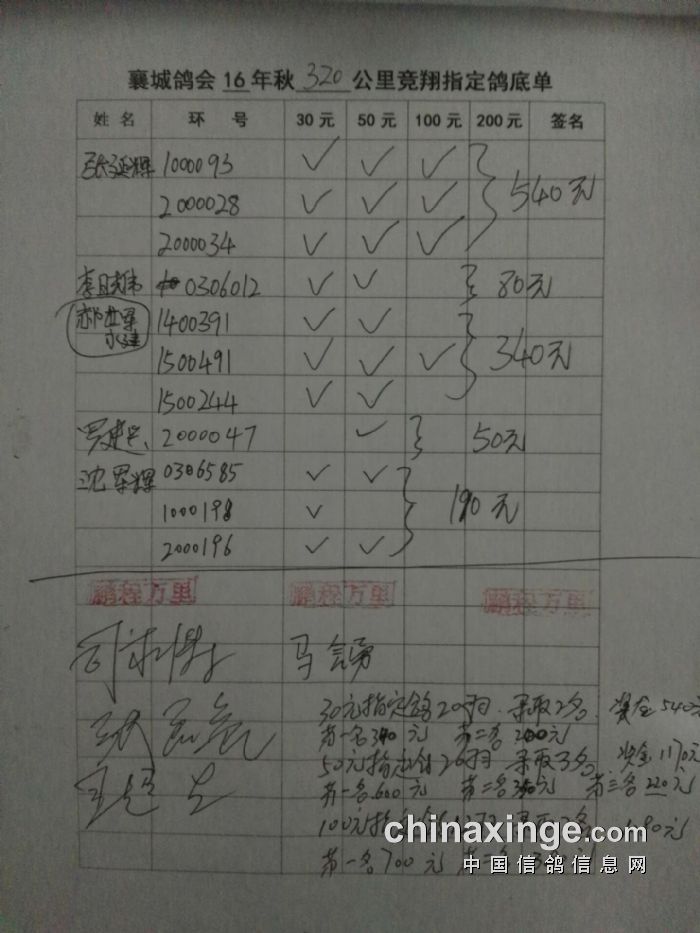 襄城鸽会 16 年秋 320 公里竞翔指定鸽底单
姓 名 环 号 30 元 50 元 100 元 200 元 签名
张延辉 1000093 ✓ ✓ ✓
2000028 ✓ ✓ ✓ 540元
2000034 ✓ ✓ ✓
李晓伟 0306012 ✓ ✓ 80元
1400391 ✓ ✓
1500491 ✓ ✓ ✓ 340元
1500244 ✓ ✓
罗建 2000047 ✓ 50元
沈军辉 0306585 ✓ ✓
1000198 ✓ 190元
2000196 ✓ ✓
鹏程万里 鹏程万里 鹏程万里
马
30元指定鸽20羽 录取2名 奖金540元
第一名340元 第二名200元
50元指定鸽26羽 录取3名 奖金1170元
第一名600元 第二名350元 第三名220元
100元指
第一名700元
chinaxinge.com
中国信鸽信息网